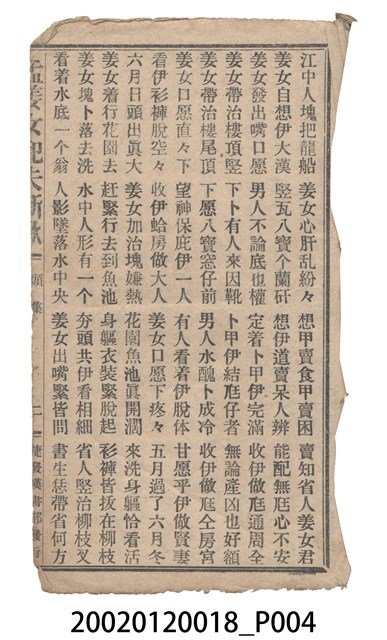 江中人塊把龍船 姜女心肝乱紛々 想甲賣食甲賣困 賣知省人姜女君
姜女自想伊大漢 竪瓦八寶个蘭矸 想伊道賣呆人辨 能配無尫心不安
姜女發出嘴口愿 男人不論底也權 定着卜甲伊完滿 收伊做尫通周全
姜女帶治樓頂竪 下卜有人來因靴 卜甲伊結尫仔者 無論產凶也好額
姜女帶治樓尾頂 下愿八寶窓仔前 男人水醜卜成冷 收伊做尫仝房宮
姜女口愿直々下 望神保庇伊一人 有人看着伊脫体 甘愿平伊做賢妻
看伊衫褲脫空々 收伊蛤房做大人 姜女口愿下疼々 五月過了六月冬
六月日頭出眞大 姜女加治塊嫌熱 花園魚池眞開濶 來洗身軀恰看活
姜女着行花園去 赶緊行去到魚池 身軀衣裝緊脫起 衫褲皆拔在柳枝
姜女塊卜落去洗 水中人形有一个 夯頭共伊看相細 省人竪治柳枝叉
看着水底一个翁 人影墜落水中央 姜女出嘴緊皆問 書生恁帶省何方
孟姜女配夫新歌 頭集 二